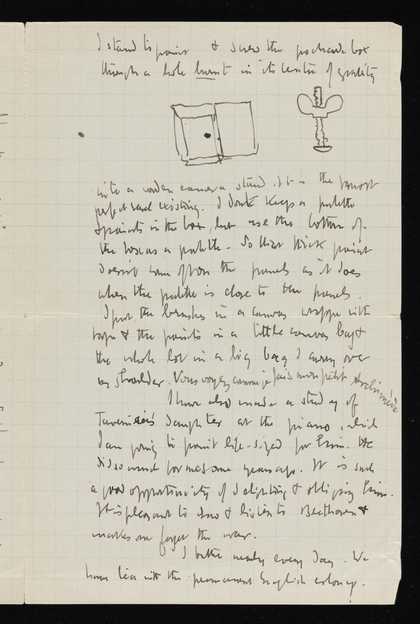 I stand to paint & screw the pochade box
through a hole burnt in its centre of gravity
into a wooden camera stand. It is the most
perfect easel existing. I don't keep a palette
& paints in the box, but use the bottom of
the box as a palette. So that thick paint
doesn't come off on the panels as it does
when the palette is close to the panels.
I put the brushes in a canvas wrapper with
tape & the paints in a little canvas bag &
the whole lot in a big bag I carry over
my shoulder. Vous voyez comme je fais mon petit
I have also made a study of
Tavernier's daughter at the piano, which
I am going to paint life-sized for him. He
discovered for me some years ago. It is such
a good opportunity of delighting & obliging him.
It is pleasant to draw & listen to Beethoven &
makes me forget the war.
I bathe nearly every day. We
have tea with the permanent English colony.